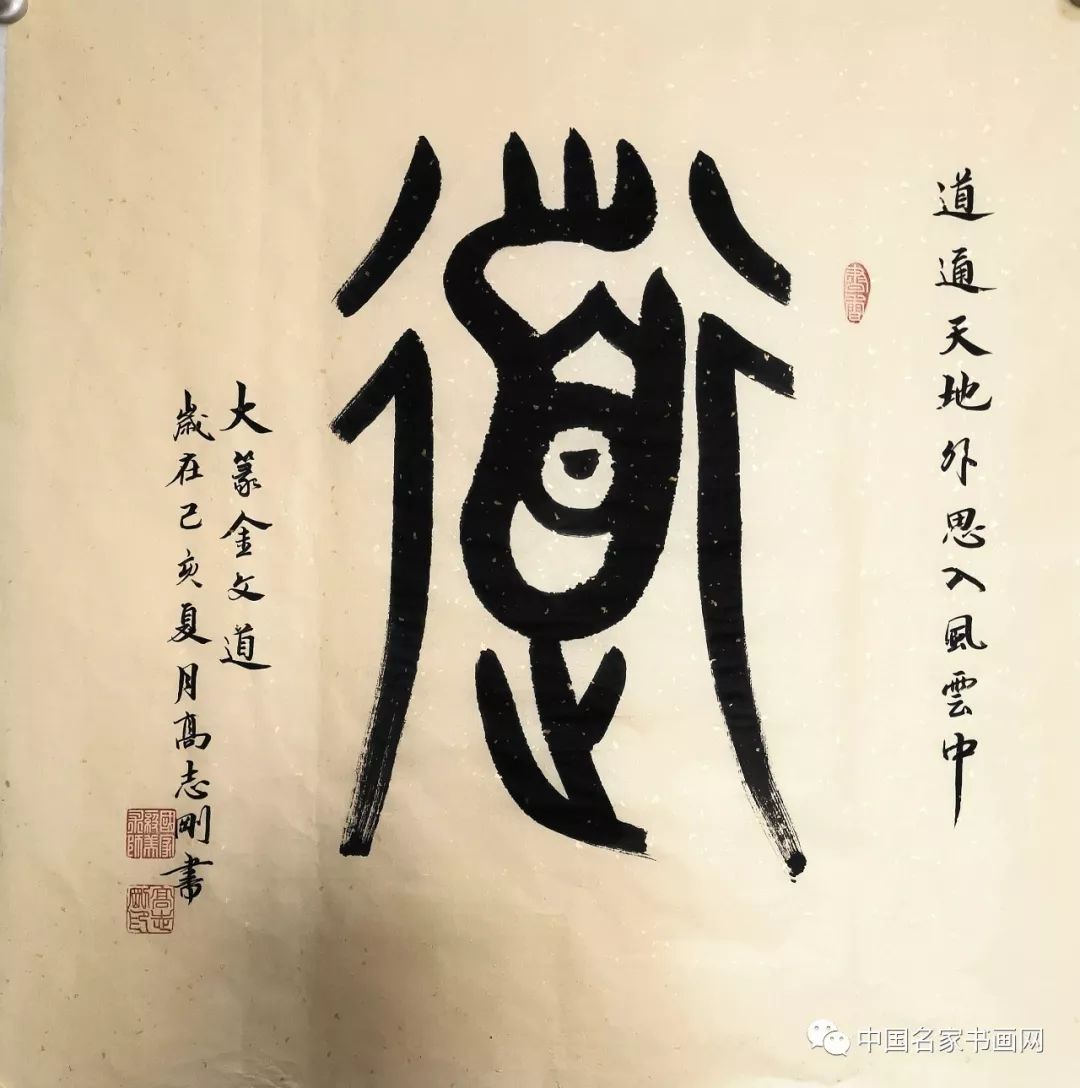 道通天地外思入風雲中
道
大篆金文道
歲在己亥夏月高志剛書
中国名家书画网